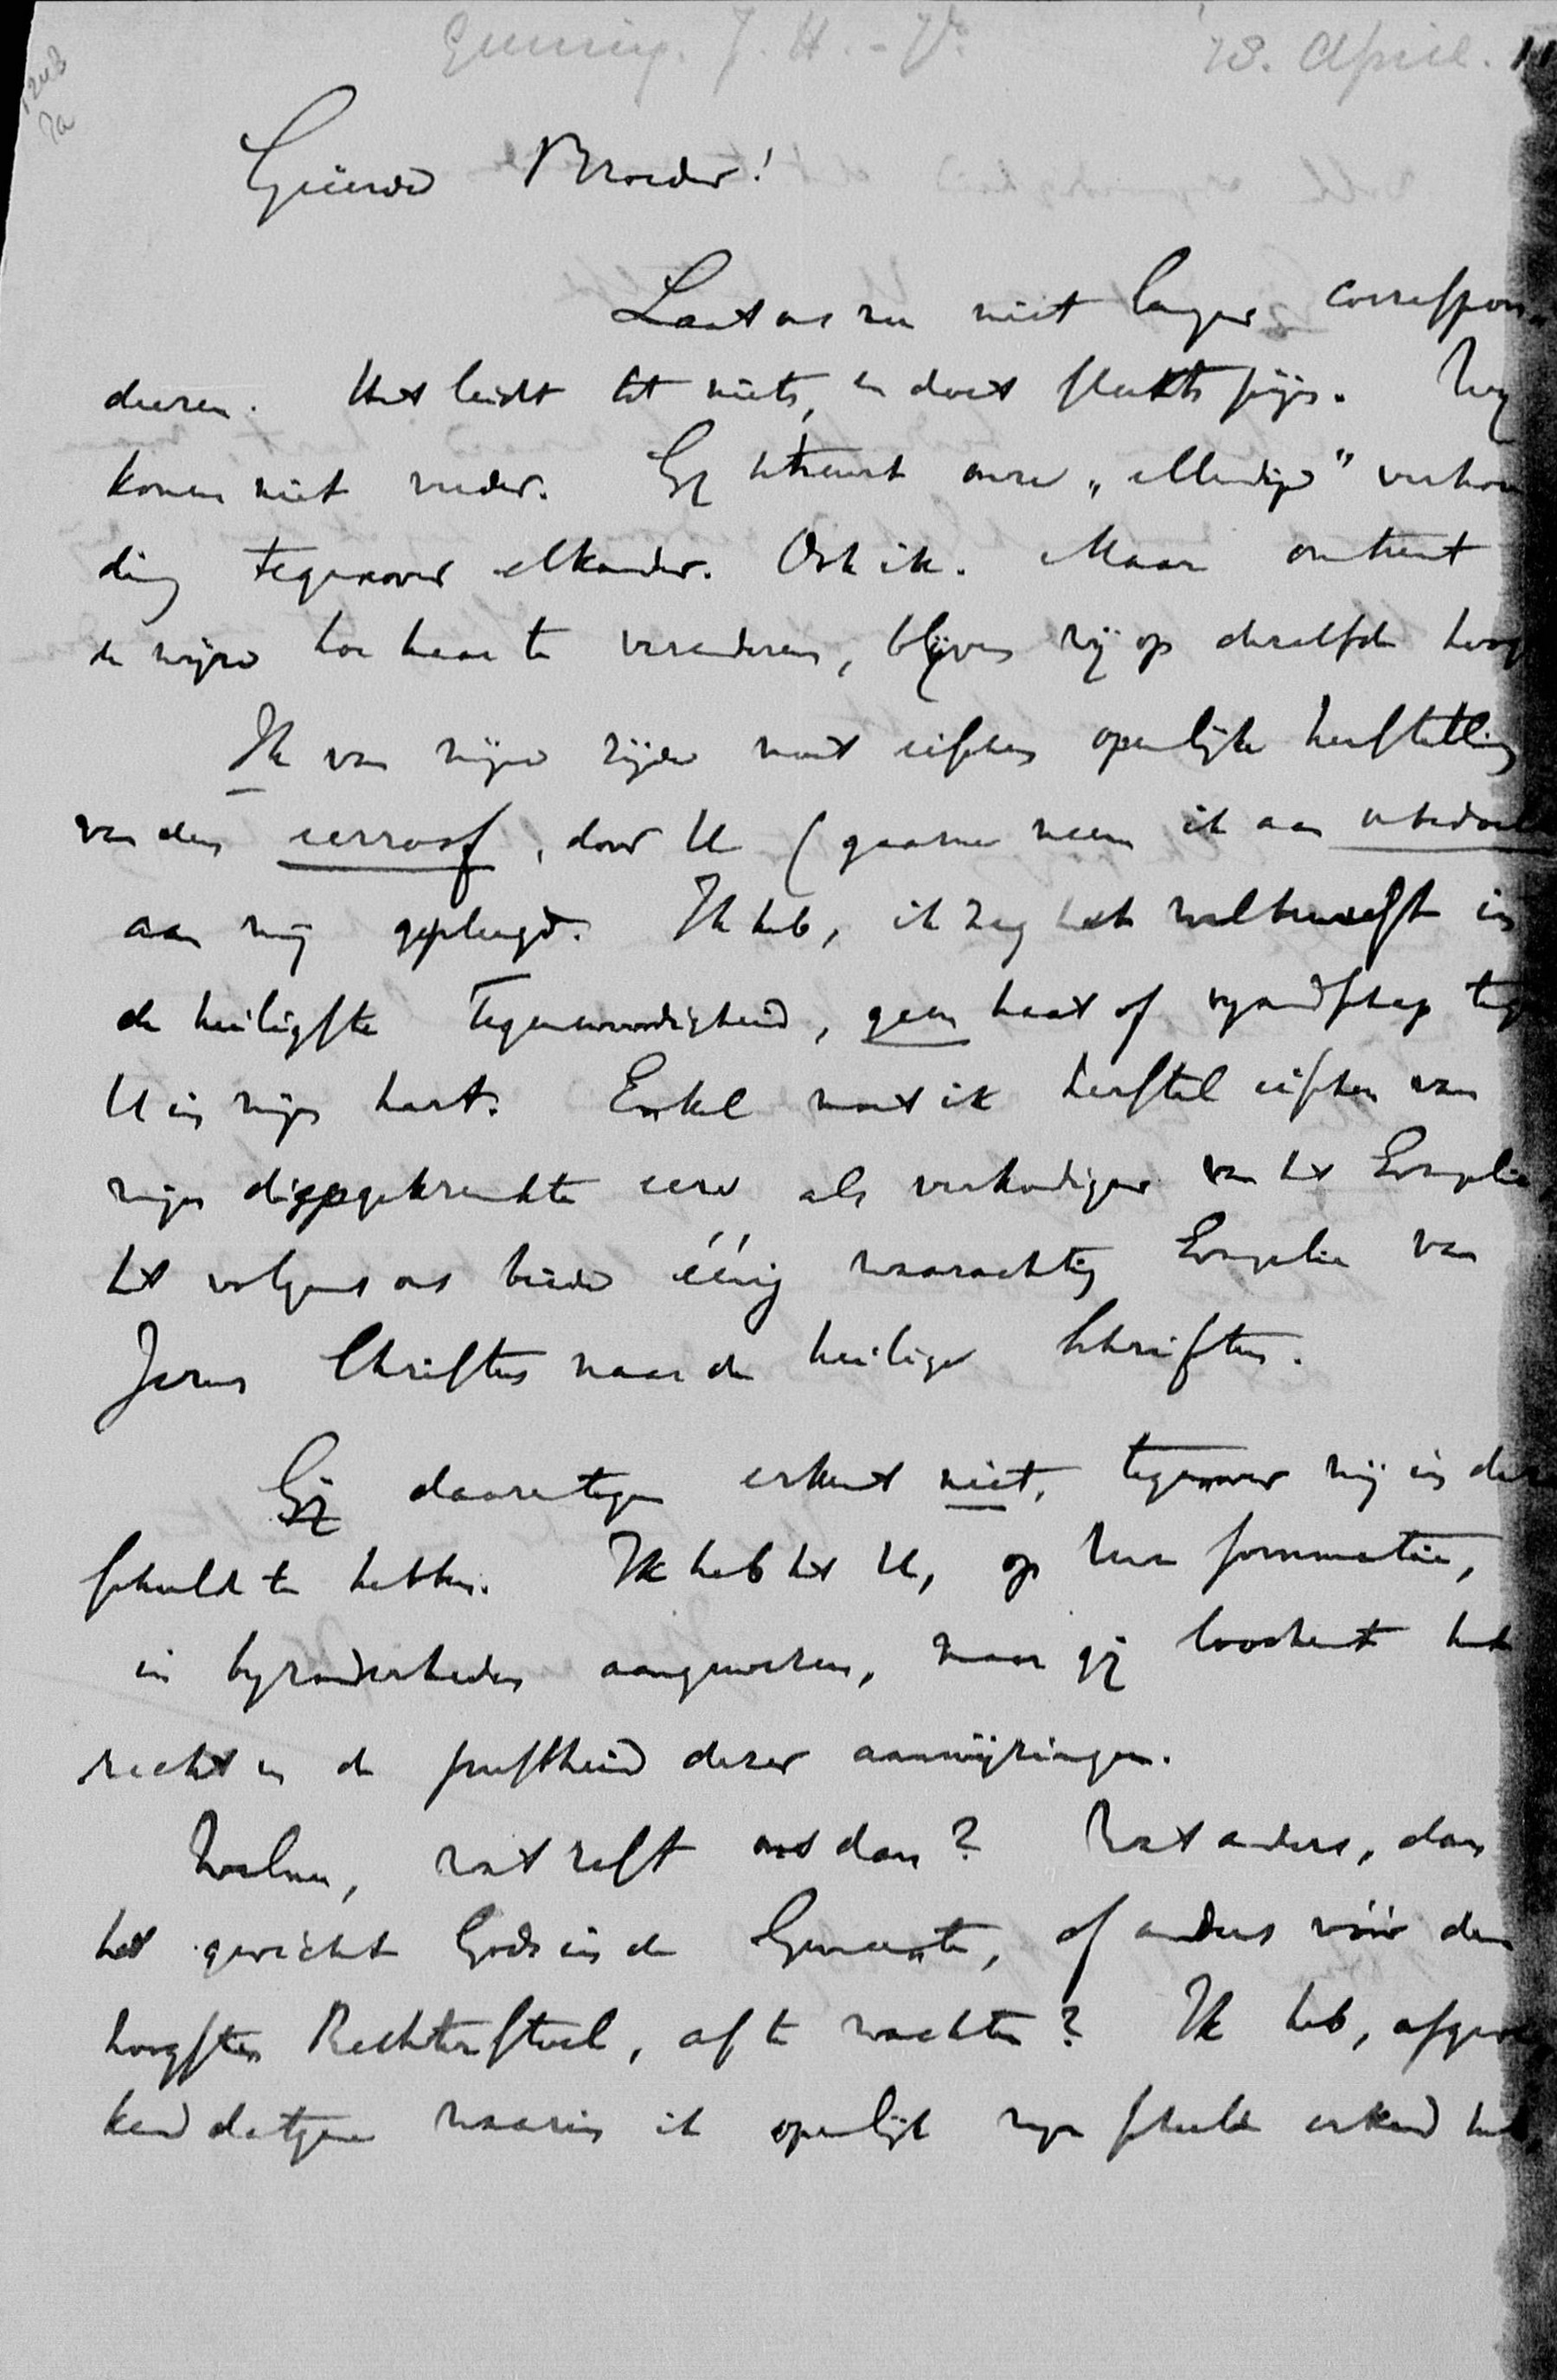 Gunning. J. H. - Jr. 23. April.
Geëerde Broeder!
Laat ons nu niet langer correspon-
deeren. Het leidt tot niets, en doet slechts pijn. Wij
komen niet verder. Gij betreurt onze „ellendige" verhou
ding tegenover elkander. Ook ik. Maar omtrent
de wijze hoe haar te veranderen, blijven wij op dezelfde hoog
Ik van mijne zijde moet eischen openlijke herstelling
van den eerroof, door U (gaarne neem ik aan onbedoel
aan mij gepleegd. Ik heb, ik zeg het welbewust in
de heiligste tegenwoordigheid, geen haat of vyandschap teg
U in mijn hart. Enkel moet ik herstel eischen van
mijn diepgekrenkte eere als verkondiger van het Evangelie,
het volgens ons beide éénig waarachtig Evangelie van
Jezus Christus naar de heilige Schriften.
Gij daarentegen erkent niet, tegenover mij in deze
schuld te hebben. Ik heb het U, op Uwe sommatie,
in byzonderheden aangewezen, maar gij loochent het
recht en de juistheid dezer aanwijzingen.
Welnu, wat rest ons dan? Wat anders, dan
het gericht Gods in de Gemeente, of anders vóór den
hoogsten Rechterstoel, af te wachten? Ik heb, afgere
kend datgene waarin ik openlijk mijn schuld erkend heb,